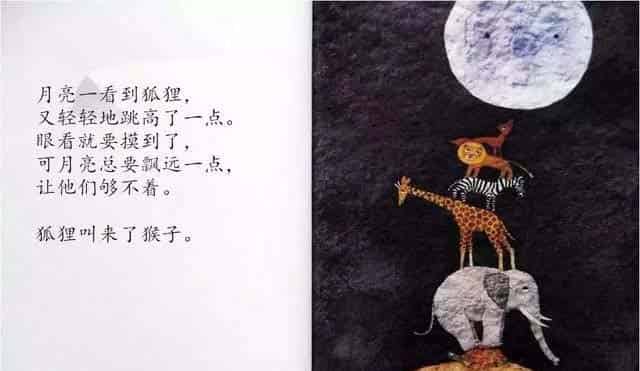 月亮一看到狐狸，
又轻轻地跳高了一点。
眼看就要摸到了，
可月亮总要飘远一点，
让他们够不着。
狐狸叫来了猴子。